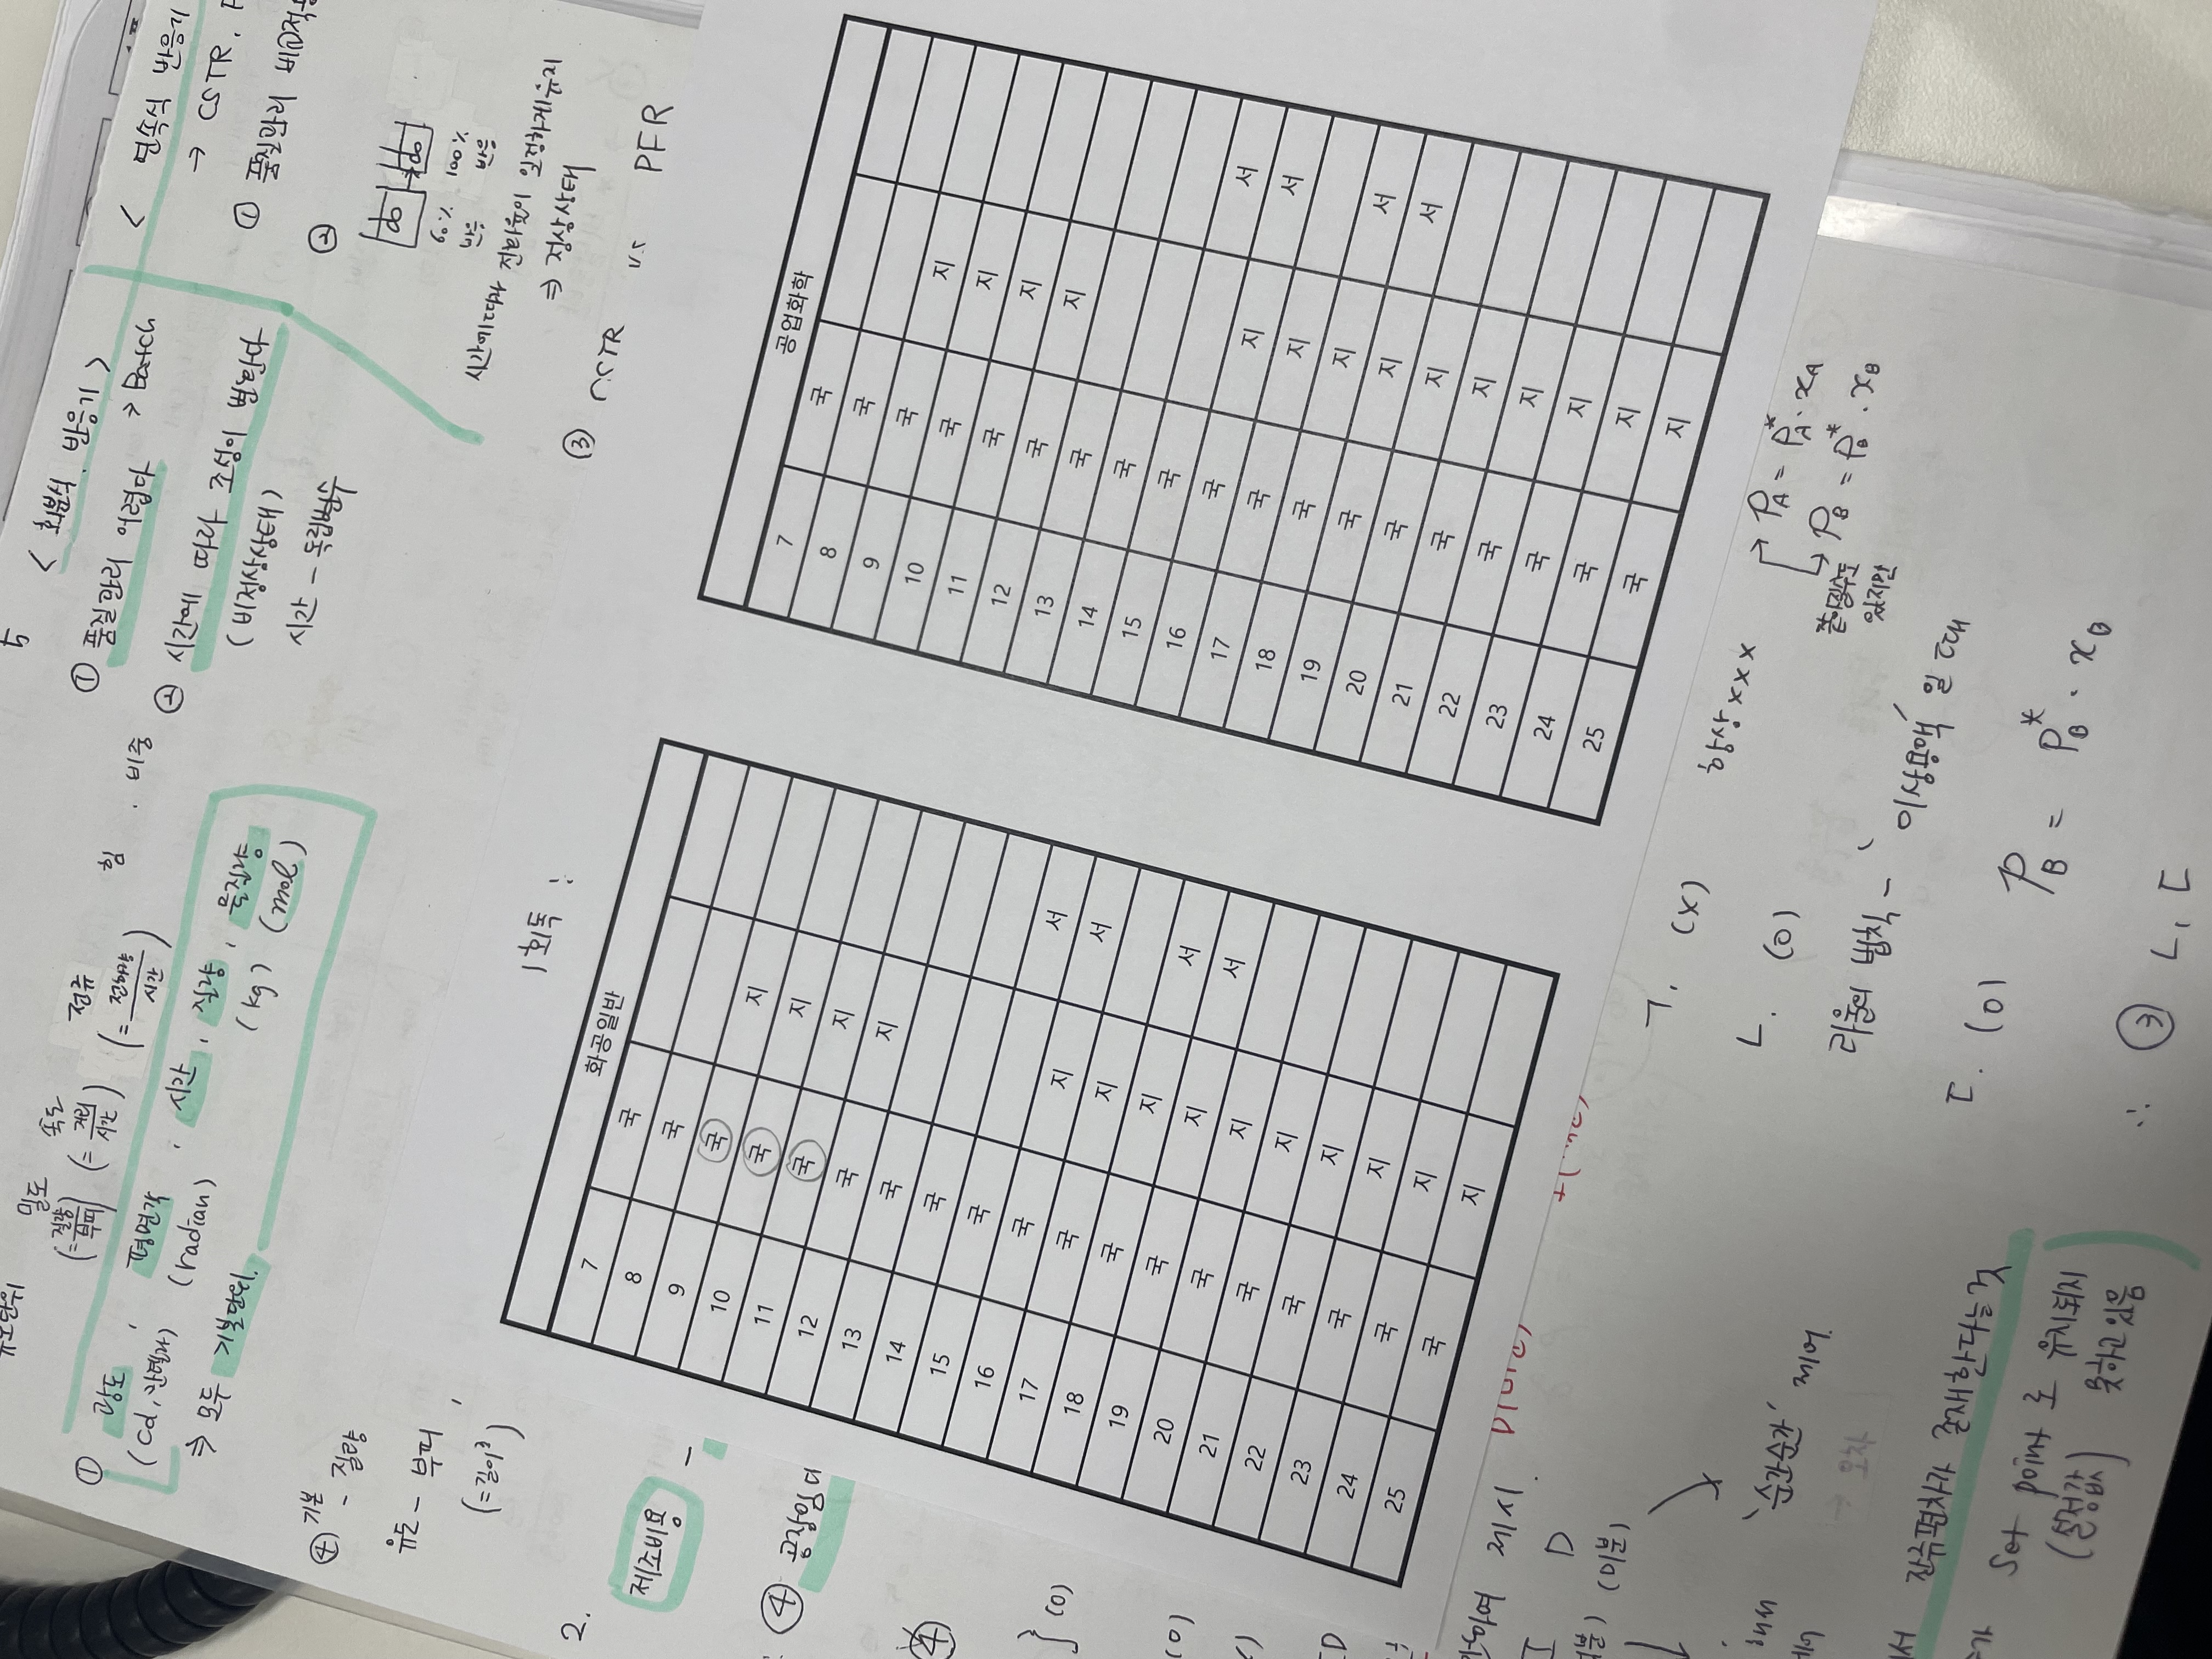 < 회분식 반응기 >
① 품질관리 어렵다 → Batch
② 시간에 따라 조성이 변한다
(비정상상태)
시간 - 독립변수
< 연속식 반응기
→ CSTR,
① 품질관리
②
60%
반응
100%
반응
시간에따라 전화율이 일정하게유지
⇒ 정상상태
③ CSTR v.s PFR
유도단위
밀도
(= 질량/부피)
속도
(= 거리/시간)
전류
(= 전하량/시간)
힘 . 비중
① 광도, 평면각, 시간, 질량, 물질량
(cd, 칸델라) (radian) (kg) (mol)
⇒ 모두 기본단위.
④ 기본 - 질량
유도 - 부피,
(=길이³)
2. 제조비용 -
④ 공장임대
④
} (o)
(o)
1회독 :
화공일반
7 국
8 국
9 국 지
10 국 지
11 국 지
12 국 지
13 국
14 국
15 국
16 국 지 서
17 국 지 서
18 국 지
19 국 지 서
20 국 지 서
21 국 지
22 국 지
23 국 지
24 국 지
25 국 지
공업화학
7 국
8 국
9 국 지
10 국 지
11 국 지
12 국 지
13 국
14 국
15 국
16 국 지 서
17 국 지 서
18 국 지
19 국 지 서
20 국 지 서
21 국 지
22 국 지
23 국 지
24 국 지
25 국 지
ㄱ. (x) 항상 xxx
P_A = P_A* · x_A
P_B = P_B* · x_B
같아질수도
있지만
ㄴ. (o)
라울의 법칙 - '이상용액' 일 때
ㄷ. (o) P_B = P_B* · x_B
∴ ③ ㄴ, ㄷ
제시.
D
(미분)
'순간순간' 제어
잔류편차가 존재한다는 것
Set point 로 유지되지
(설정값) 못하고 있음